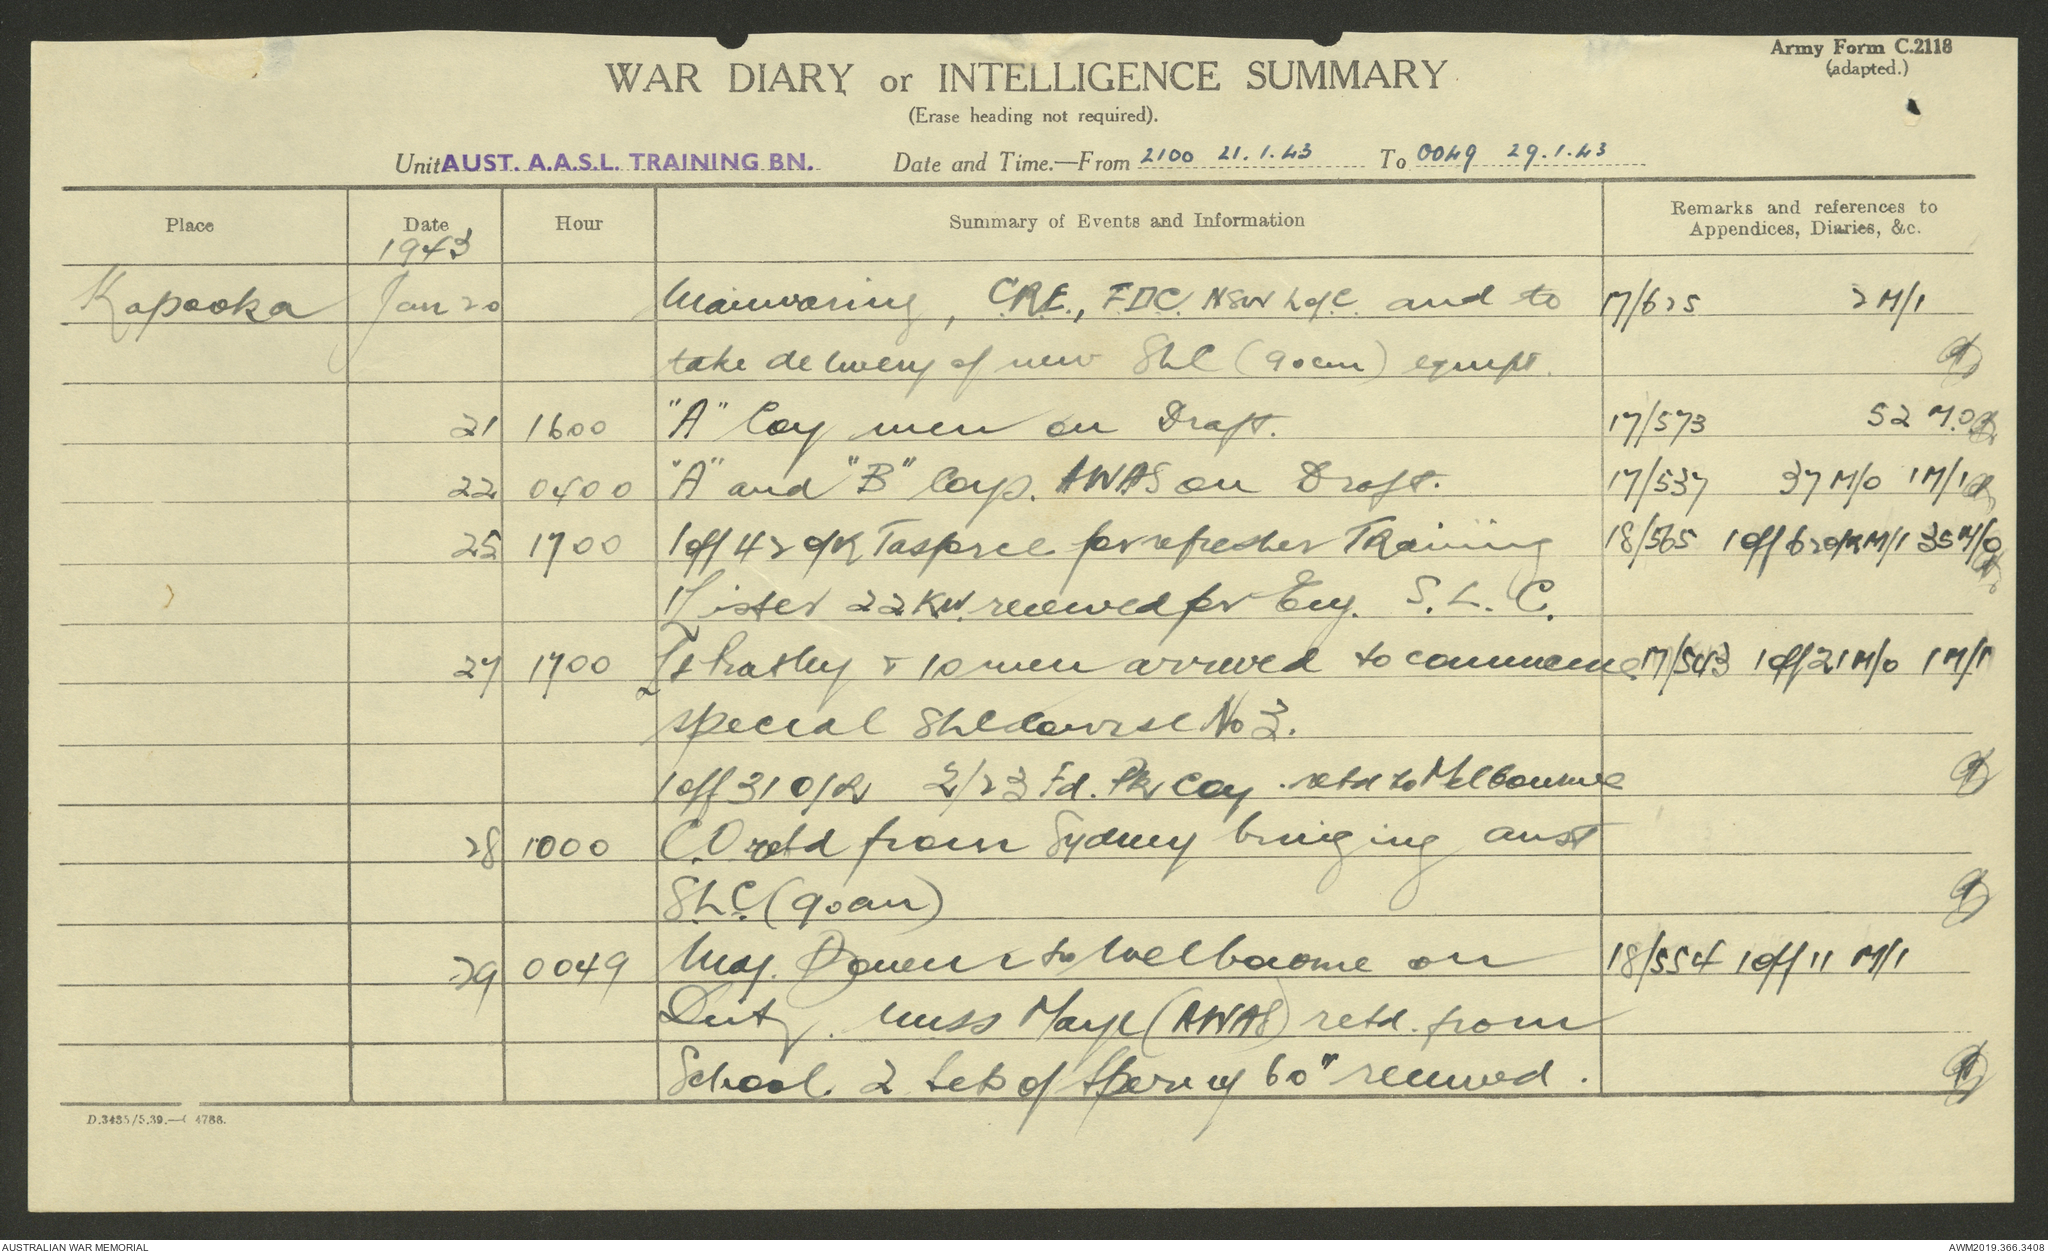 Army Form C.2118
(adapted.)
WAR DIARY or INTELLIGENCE SUMMARY
(Erase heading not required).
Unit AUST. A.A.S.L. TRAINING BN. Date and Time.—From 2100 21.1.43 To 0049 29.1.43
Place Date Hour Summary of Events and Information Remarks and references to Appendices, Diaries, &c.
1943
Kapooka Jan 20 Mainwaring, C.R.E., F.D.C. NSW L of C. and to 17/625 2 M/1
take delivery of new SLC (90cm) equipt.
21 1600 "A" Coy men on Draft. 17/573 52 M.O
22 0400 "A" and "B" Coys. AWAS on Draft. 17/537 37 M/0 1 M/1
25 1700 1 off 42 o/R for refresher Training 18/565 1 off 62 o/R M/1 35 M/0
Lister 22 KW. received for Eng. S.L.C.
27 1700 Lt & 10 men arrived to commence 17/543 1 off 21 M/0 1 M/1
special SLC course No 3.
1 off 31 O/Rs 2/23 Fd. Pk Coy. retd to Melbourne
28 1000 C.O retd from Sydney bringing aust
S.L.C. (90cm)
29 0049 Maj. to Melbourne on 18/554 1 off 11 M/1
Duty. Miss (AWAS) retd. from
School. 2 sets of Sperry 60" received.
D.3435/5.39.— 4788.
AUSTRALIAN WAR MEMORIAL AWM2019.366.3408